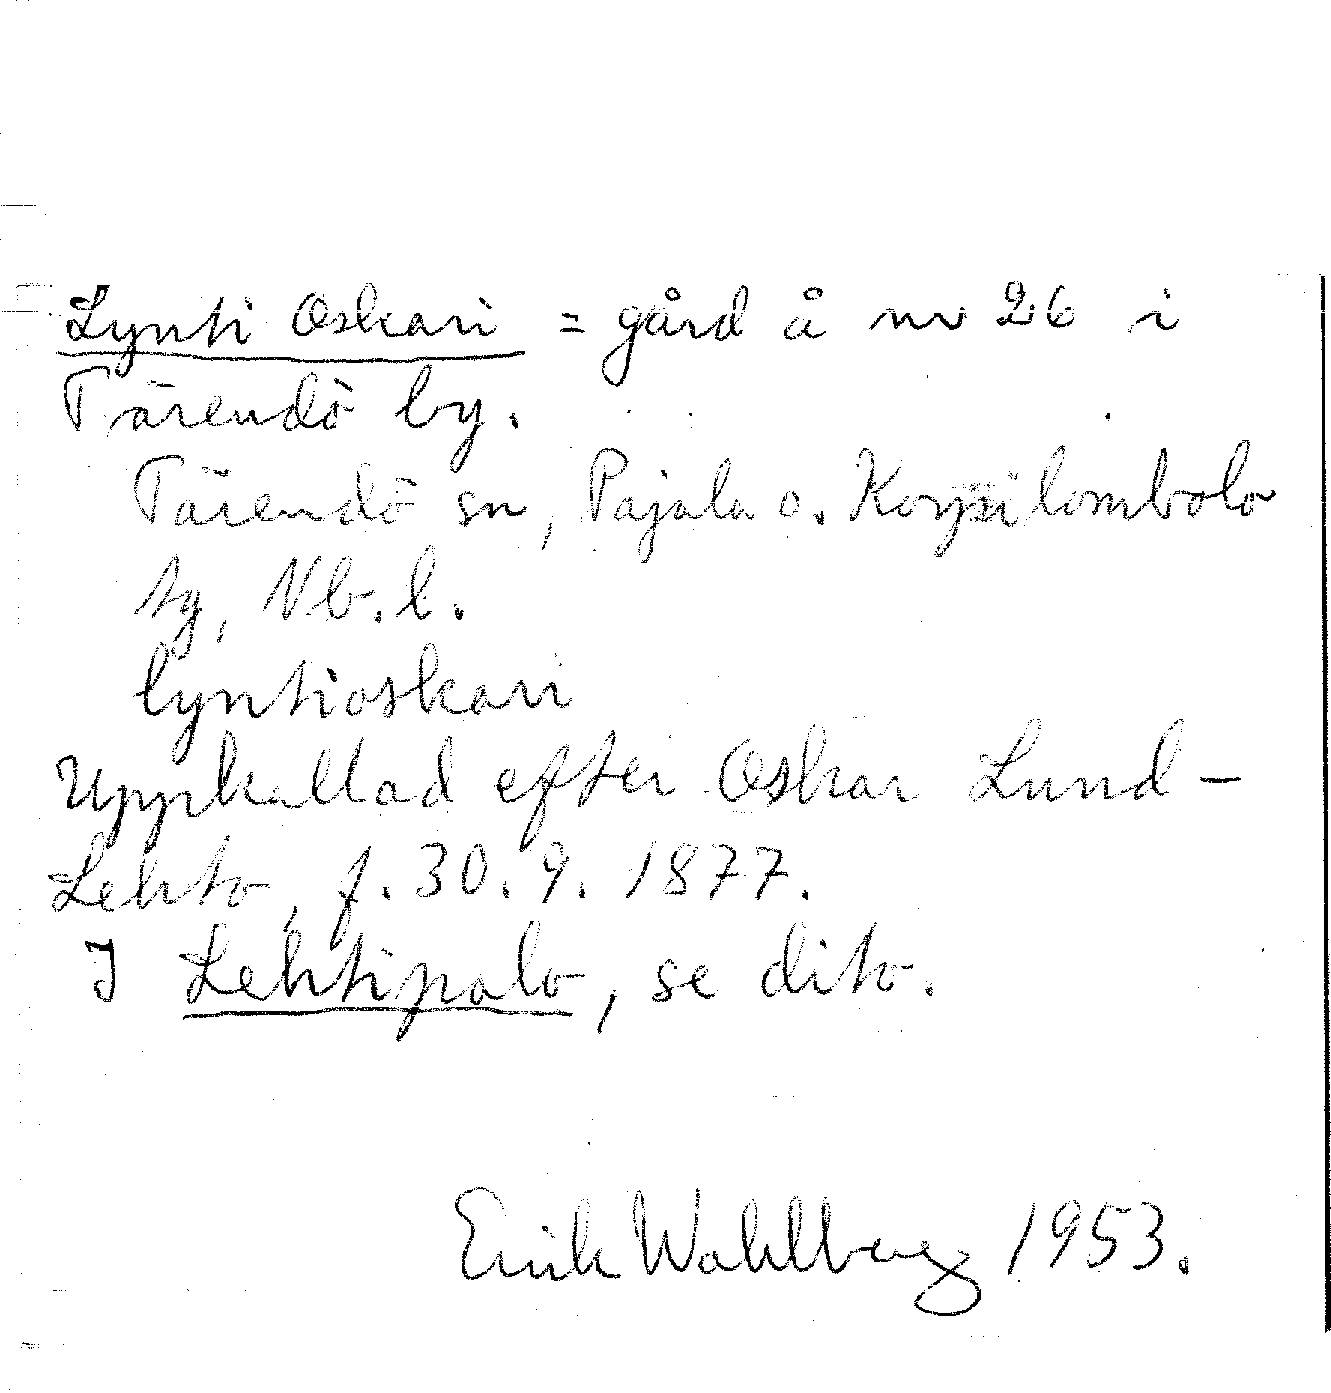 Lynti Oskari = gård å nr 26 i
Tärendö by.
Tärendö sn, Pajala o. Korpilombolo
tg, Nb.l.
lyntioskari
Uppkallad efter Oskar Lund-
Lehto, f. 30.9.1877.
I Lehtipalo, se dito.
Erik Wahlberg 1953.